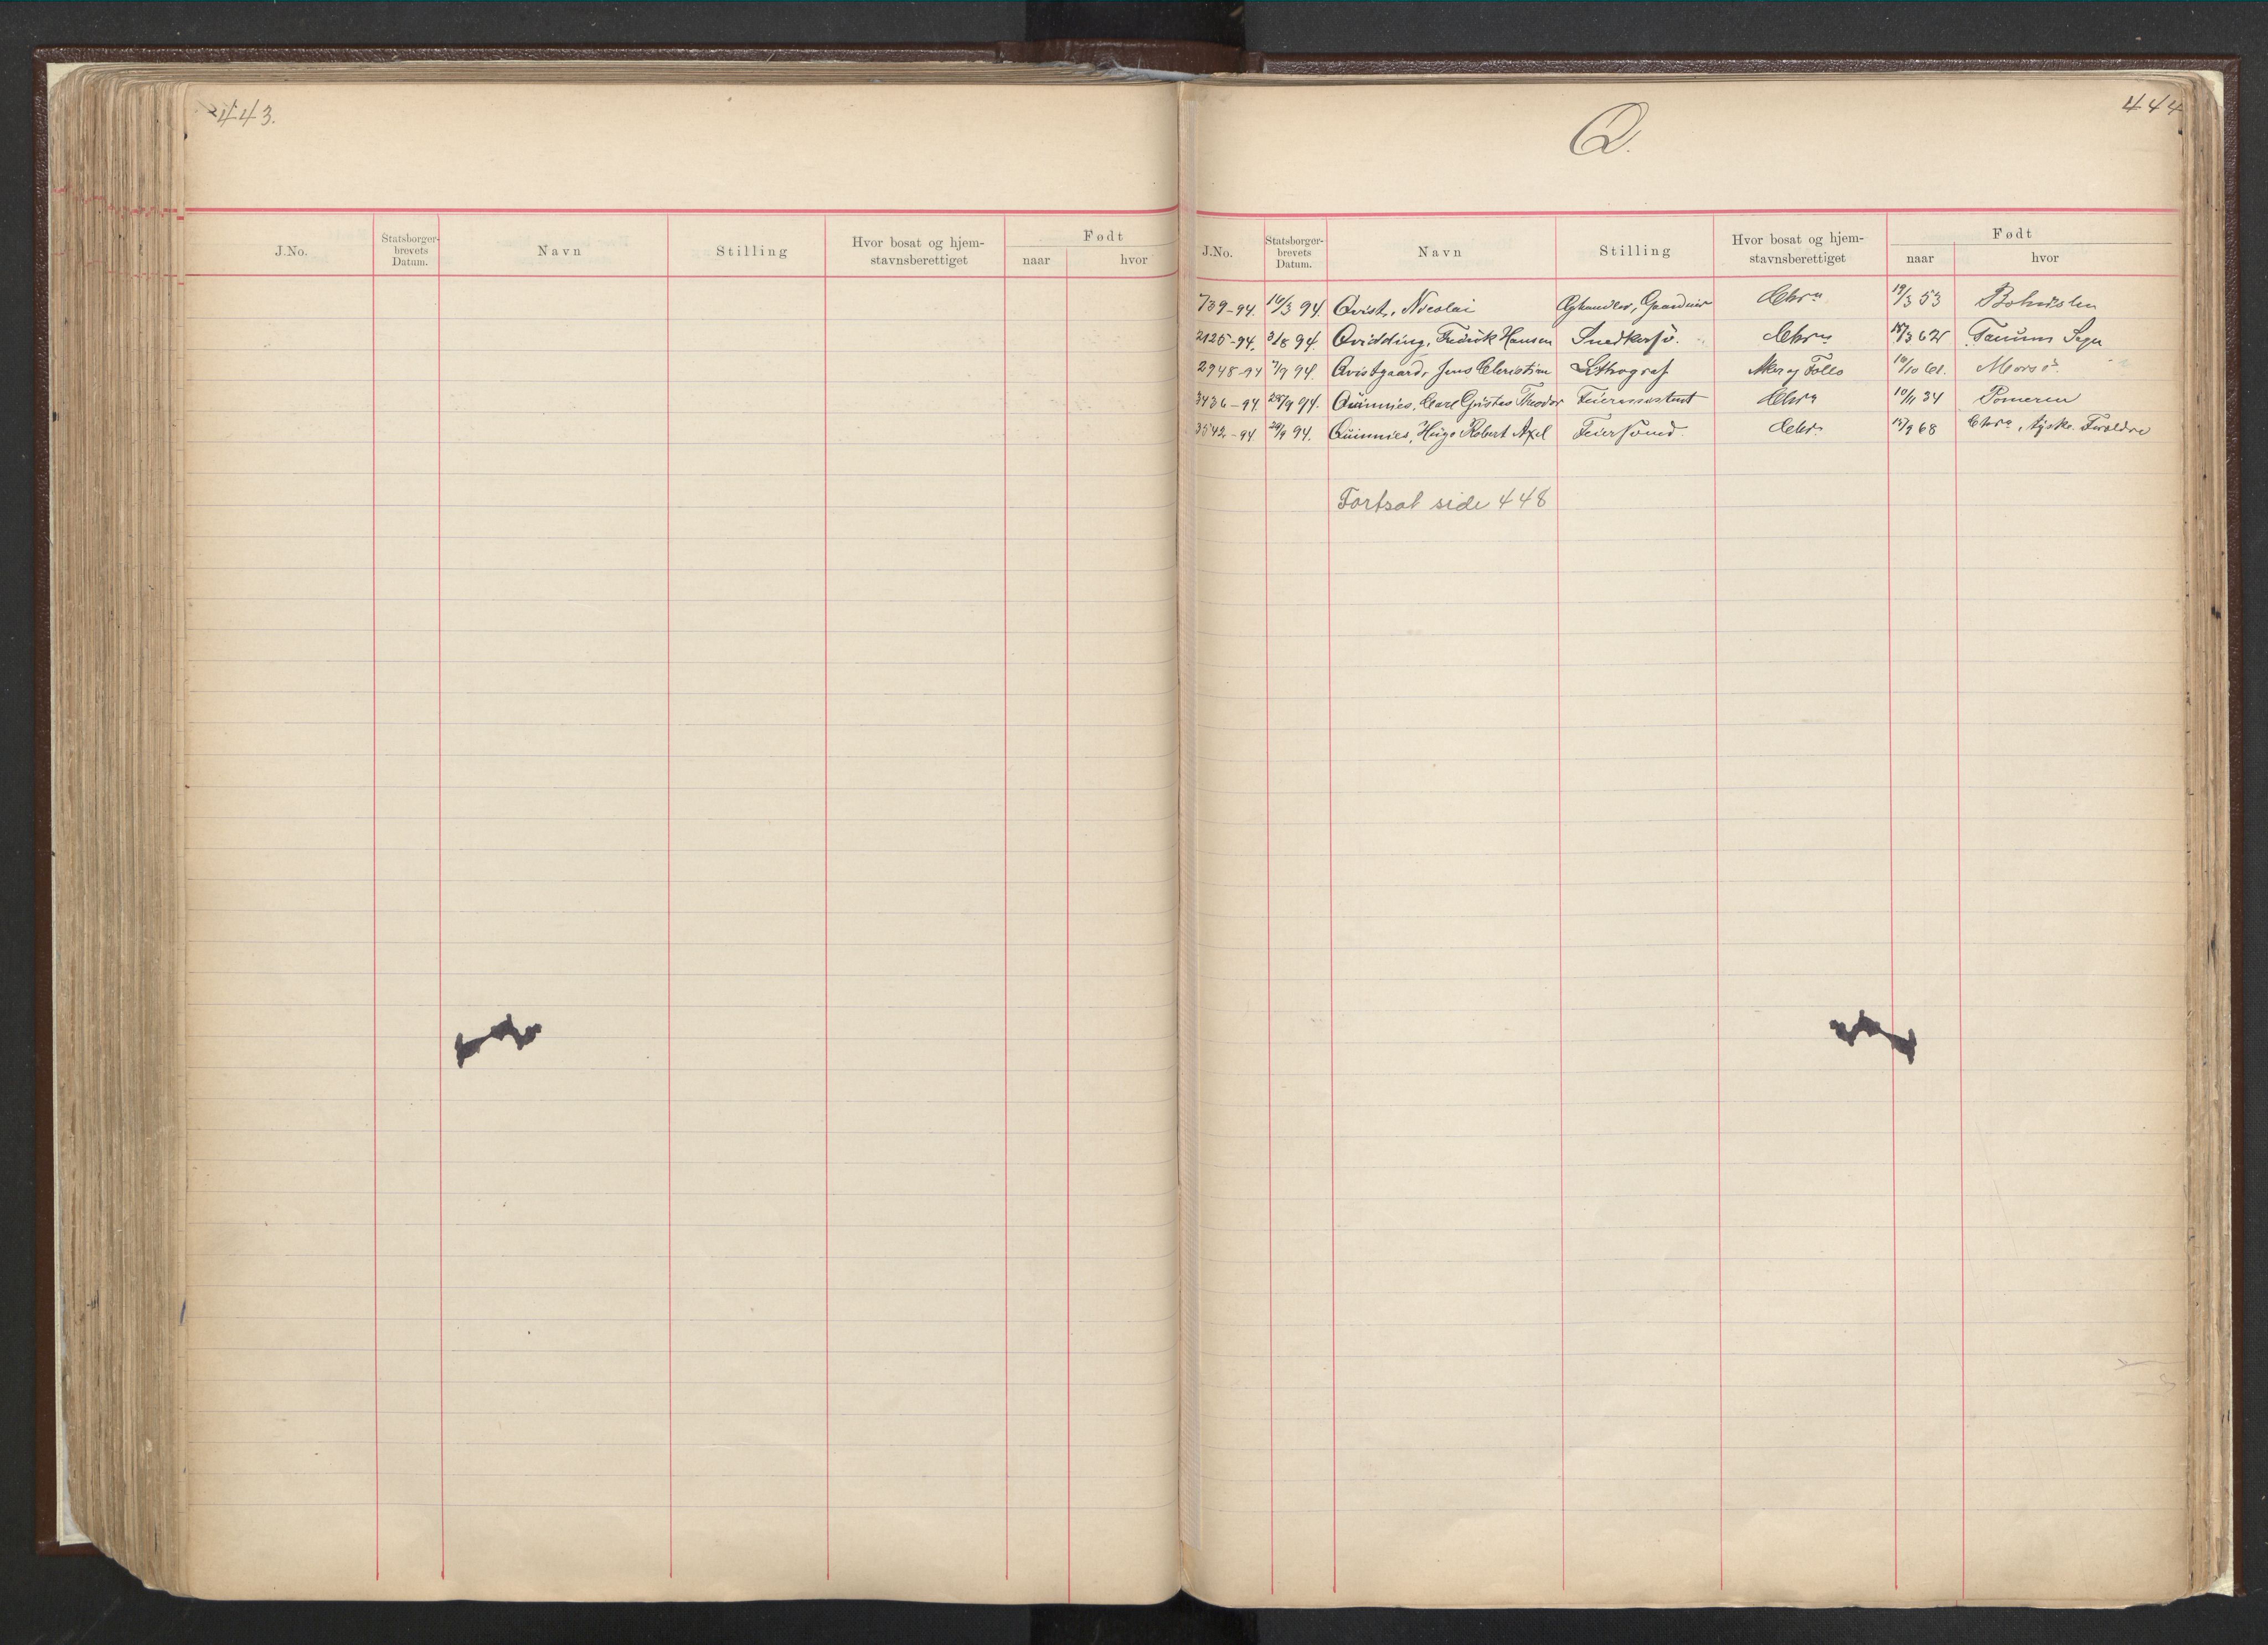 443.
J.No. Statsborger-brevets Datum. Navn Stilling Hvor bosat og hjem-stavnsberettiget Født naar hvor
444
Q.
J.No. Statsborger-brevets Datum. Navn Stilling Hvor bosat og hjem-stavnsberettiget Født naar hvor
739-94. 16/3 94. Qvist, Nicolai Chra 19/3 53 Bohuslen
2125-94. 3/8 94. Qvidding, Fredrik Hansen Snedkersv. Chra 62 Tanums Sogn
2948-94 7/9 94. Qvistgaard, Jens Christian Lithograf Aker og Follo 10/10 61. Morsø.
3436-94 94. Quinnies, Carl Gustav Theodor Feierassistent Chra 10/11 34 Pomeren
3542-94 29/9 94. Quinnies, Hugo Robert Axel Feiersvend Chr. 68 Chra, tyske Forældre
Fortsat side 448